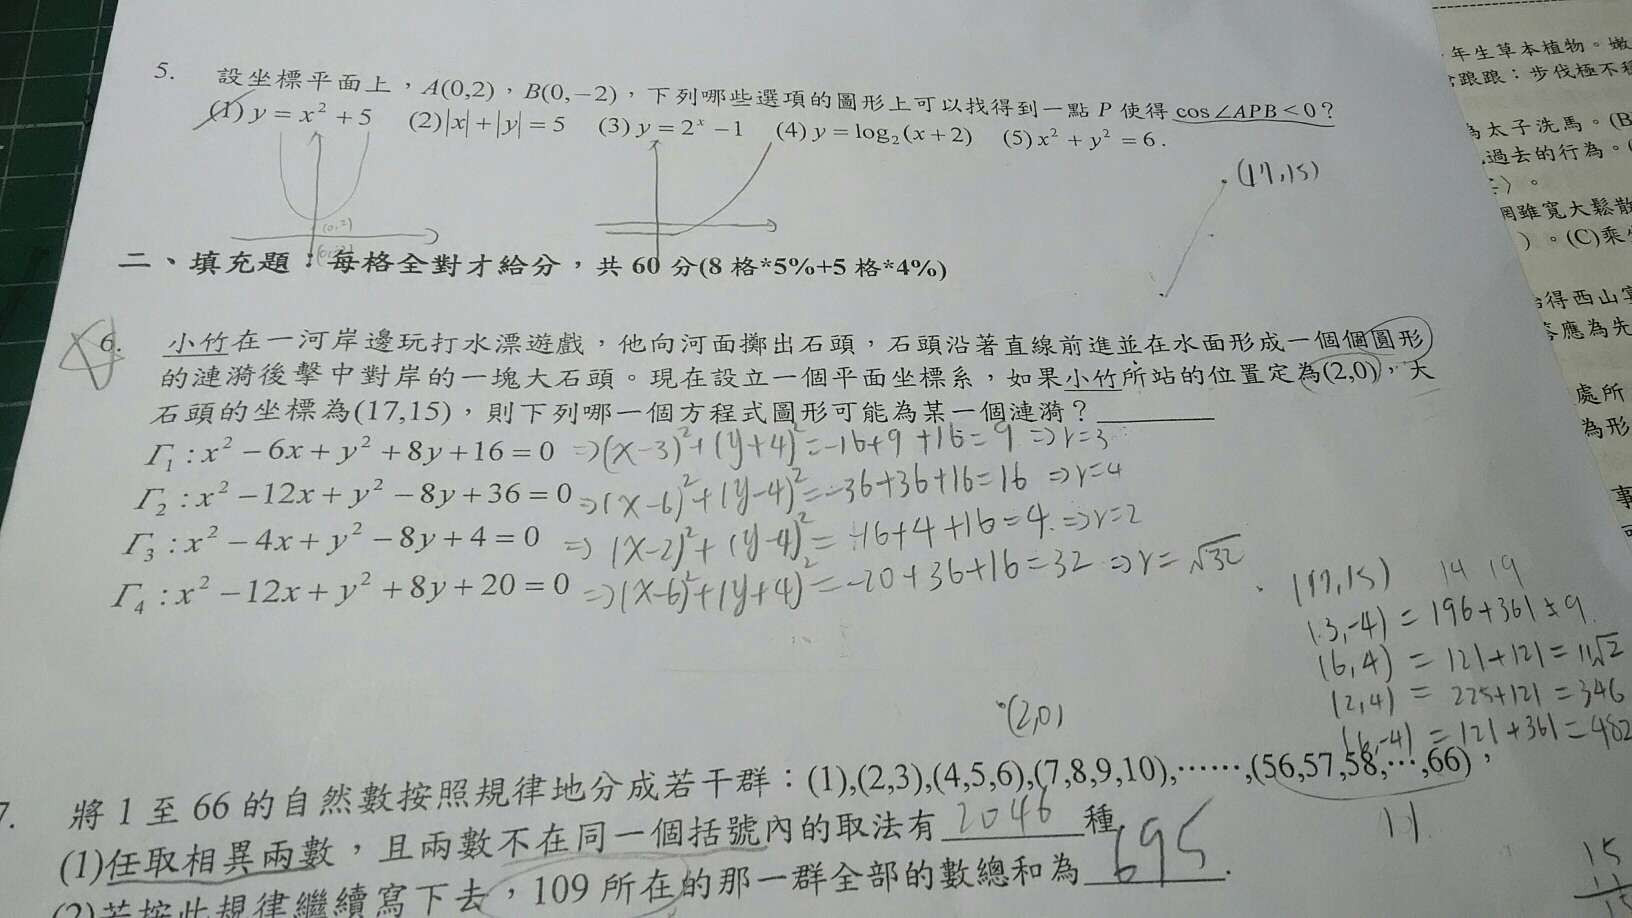 5. 設坐標平面上，A(0,2)，B(0,−2)，下列哪些選項的圖形上可以找得到一點 P 使得 cos∠APB<0？
(1) y = x² + 5 (2)|x|+|y| = 5 (3) y = 2ˣ −1 (4) y = log₂(x+2) (5) x² + y² = 6 .
(17,15)
(0,2)
二、填充題：每格全對才給分，共 60 分(8 格*5%+5 格*4%)
6. 小竹在一河岸邊玩打水漂遊戲，他向河面擲出石頭，石頭沿著直線前進並在水面形成一個個圓形
的漣漪後擊中對岸的一塊大石頭。現在設立一個平面坐標系，如果小竹所站的位置定為(2,0)，大
石頭的坐標為(17,15)，則下列哪一個方程式圖形可能為某一個漣漪？
Γ₁ : x² − 6x + y² + 8y + 16 = 0 ⇒(x−3)²+(y+4)²=−16+9+16=9 ⇒r=3
Γ₂ : x² −12x + y² −8y + 36 = 0 ⇒(x−6)²+(y−4)²=−36+36+16=16 ⇒r=4
Γ₃ : x² − 4x + y² −8y + 4 = 0 ⇒(x−2)²+(y−4)²= 16+4+16=4. ⇒r=2
Γ₄ : x² −12x + y² + 8y + 20 = 0 ⇒(x−6)²+(y+4)²=−20+36+16=32 ⇒r=√32
(17,15) 14 19
(3,−4) = 196+361 ± 9
(6,4) = 121+121 = 11√2
(2,4) = 225+121 = 346
(6,−4) = 121+361 = 482
(2,0)
7. 將 1 至 66 的自然數按照規律地分成若干群：(1),(2,3),(4,5,6),(7,8,9,10),……,(56,57,58,…,66)，
11
(1)任取相異兩數，且兩數不在同一個括號內的取法有 2046 種
(2)若按此規律繼續寫下去，109 所在的那一群全部的數總和為 695 .
15
年生草本植物。嫩
踉踉：步伐極不
為太子洗馬。(B
過去的行為。(
。
罔雖寬大鬆散
）。(C)乘
得西山
應為先
處所
為形
事